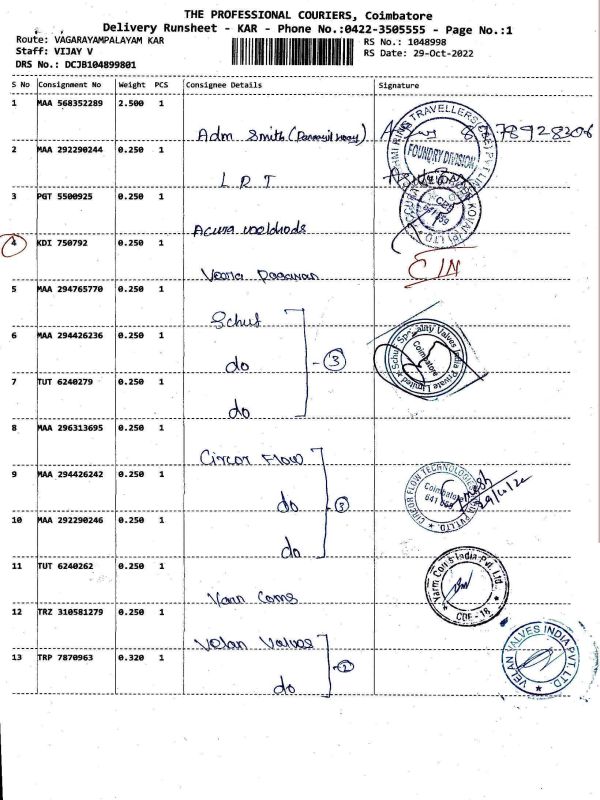 THE PROFESSIONAL COURIERS, Coimbatore
Delivery Runsheet - KAR - Phone No.:0422-3505555 - Page No.:1
Route: VAGARAYAMPALAYAM KAR
RS No.: 1048998
Staff: VIJAY V
RS Date: 29-Oct-2022
DRS No.: DCJB104899801
S No Consignment No Weight PCS Consignee Details Signature
1 MAA 568352289 2.500 1
Adm Smith
FOUNDRY DIVISION
2 MAA 292290244 0.250 1
L R T
3 PGT 5500925 0.250 1
Acura
4 KDI 750792 0.250 1
5 MAA 294765770 0.250 1
Schuf
6 MAA 294426236 0.250 1
do 3
Schuf Speciality Valves India Private Limited
Coimbatore
7 TUT 6240279 0.250 1
do
8 MAA 296313695 0.250 1
Circor Flow
9 MAA 294426242 0.250 1
do 3
CIRCOR FLOW TECHNOLOGIES INDIA PVT.LTD.
Coimbatore
29/10/22
10 MAA 292290246 0.250 1
do
11 TUT 6240262 0.250 1
Varn Coms
CBE - 18
12 TRZ 310581279 0.250 1
Velan Valves
13 TRP 7870963 0.320 1
do 2
VELAN VALVES INDIA PVT. LTD.